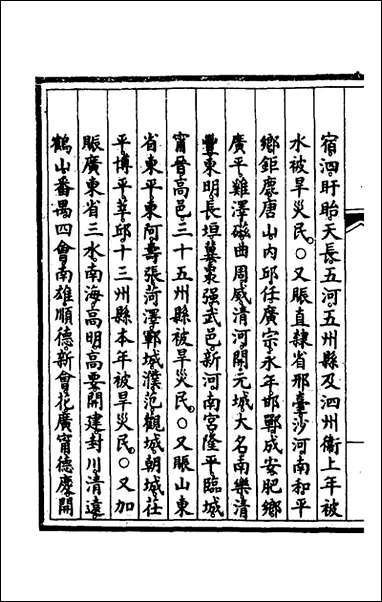 宿泗盱眙天長五河五州縣及泗州衞上年被
水被旱災民。○又賑直隸省邢臺沙河南和平
鄉鉅鹿唐山內邱任廣宗永年邯鄲成安肥鄉
廣平雞澤磁曲周威清河開元城大名南樂清
豐東明長垣冀棗强武邑新河南宮隆平臨城
甯晉高邑三十五州縣被旱災民。○又賑山東
省東平東阿壽張菏澤鄆城濮范觀城朝城茌
平博平莘邱十三州縣本年被旱災民。○又加
賑廣東省三水南海高明高要開建封川清遠
鶴山番禺四會南雄順德新會花廣甯德慶開